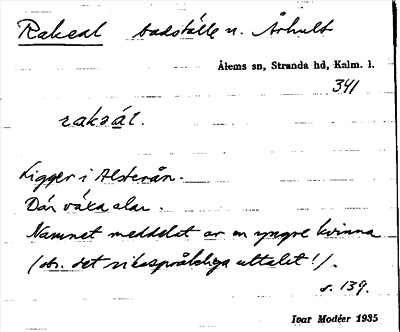 Rakeal badställe n. Århult
Ålems sn, Stranda hd, Kalm. l.
341
rakeál.
Ligger i Alsterån.
Där växa alar.
Namnet meddelat av en yngre kvinna
(obs. det riksspråkliga uttalet!).
s. 139.
Ivar Modéer 1935